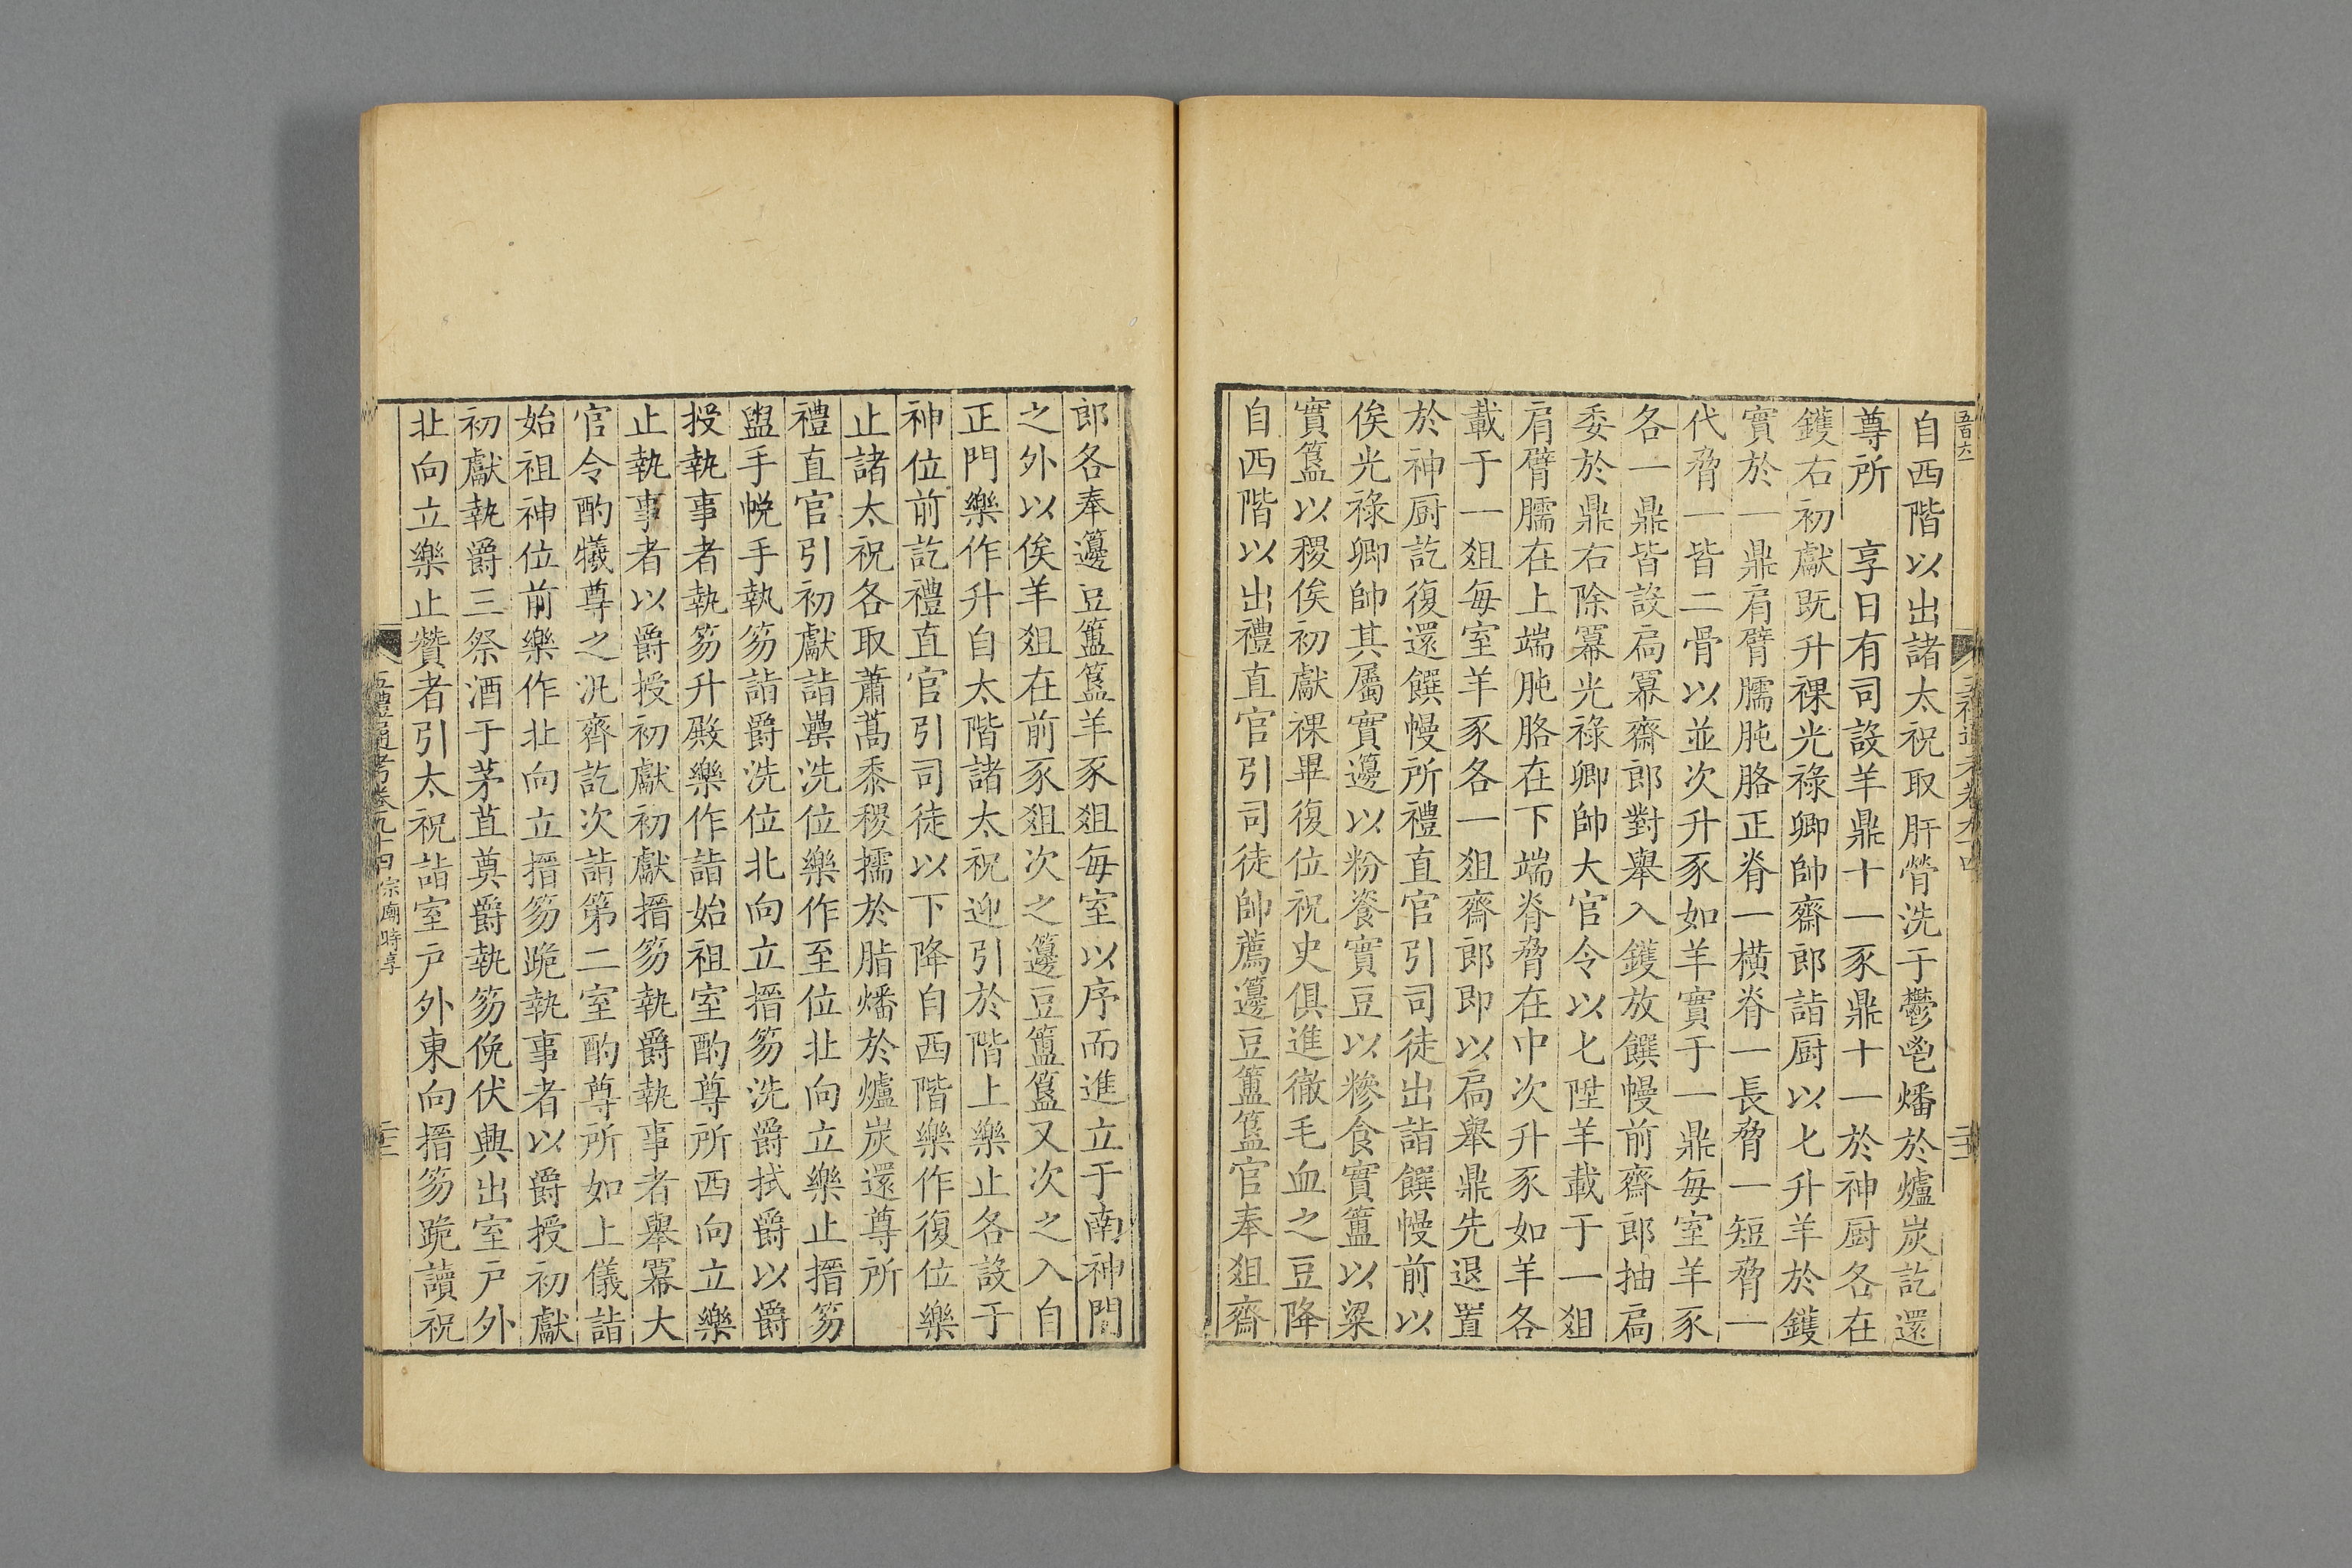 自西階以出諸太祝取肝膋洗于鬱鬯燔於爐炭訖還
尊所　享日有司設羊鼎十一豕鼎十一於神厨各在
鑊右初獻既升祼光祿卿帥齋郎詣厨以匕升羊於鑊
實於一鼎肩臂臑肫胳正脊一橫脊一長脅一短脅一
代脅一皆二骨以並次升豕如羊實于一鼎每室羊豕
各一鼎皆設扃冪齋郎對舉入鑊放饌幔前齋郎抽扃
委於鼎右除冪光祿卿帥大官令以匕陞羊載于一俎
肩臂臑在上端肫胳在下端脊脅在中次升豕如羊各
載于一俎每室羊豕各一俎齋郎即以扃舉鼎先退置
於神厨訖復還饌幔所禮直官引司徒出詣饌幔前以
俟光祿卿帥其屬實籩以粉餈實豆以糝食實簠以粱
實簋以稷俟初獻祼畢復位祝史俱進徹毛血之豆降
自西階以出禮直官引司徒帥薦籩豆簠簋官奉俎齋
郎各奉籩豆簠簋羊豕俎每室以序而進立于南神門
之外以俟羊俎在前豕俎次之籩豆簠簋又次之入自
正門樂作升自太階諸太祝迎引於階上樂止各設于
神位前訖禮直官引司徒以下降自西階樂作復位樂
止諸太祝各取蕭蒿黍稷擩於脂燔於爐炭還尊所
禮直官引初獻詣罍洗位樂作至位北向立樂止搢笏
盥手帨手執笏詣爵洗位北向立搢笏洗爵拭爵以爵
授執事者執笏升殿樂作詣始祖室酌尊所西向立樂
止執事者以爵授初獻初獻搢笏執爵執事者舉冪大
官令酌犧尊之汎齊訖次詣第二室酌尊所如上儀詣
始祖神位前樂作北向立搢笏跪執事者以爵授初獻
初獻執爵三祭酒于茅苴奠爵執笏俛伏興出室戶外
北向立樂止贊者引太祝詣室戶外東向搢笏跪讀祝
五禮通考卷九十四 宗廟時享